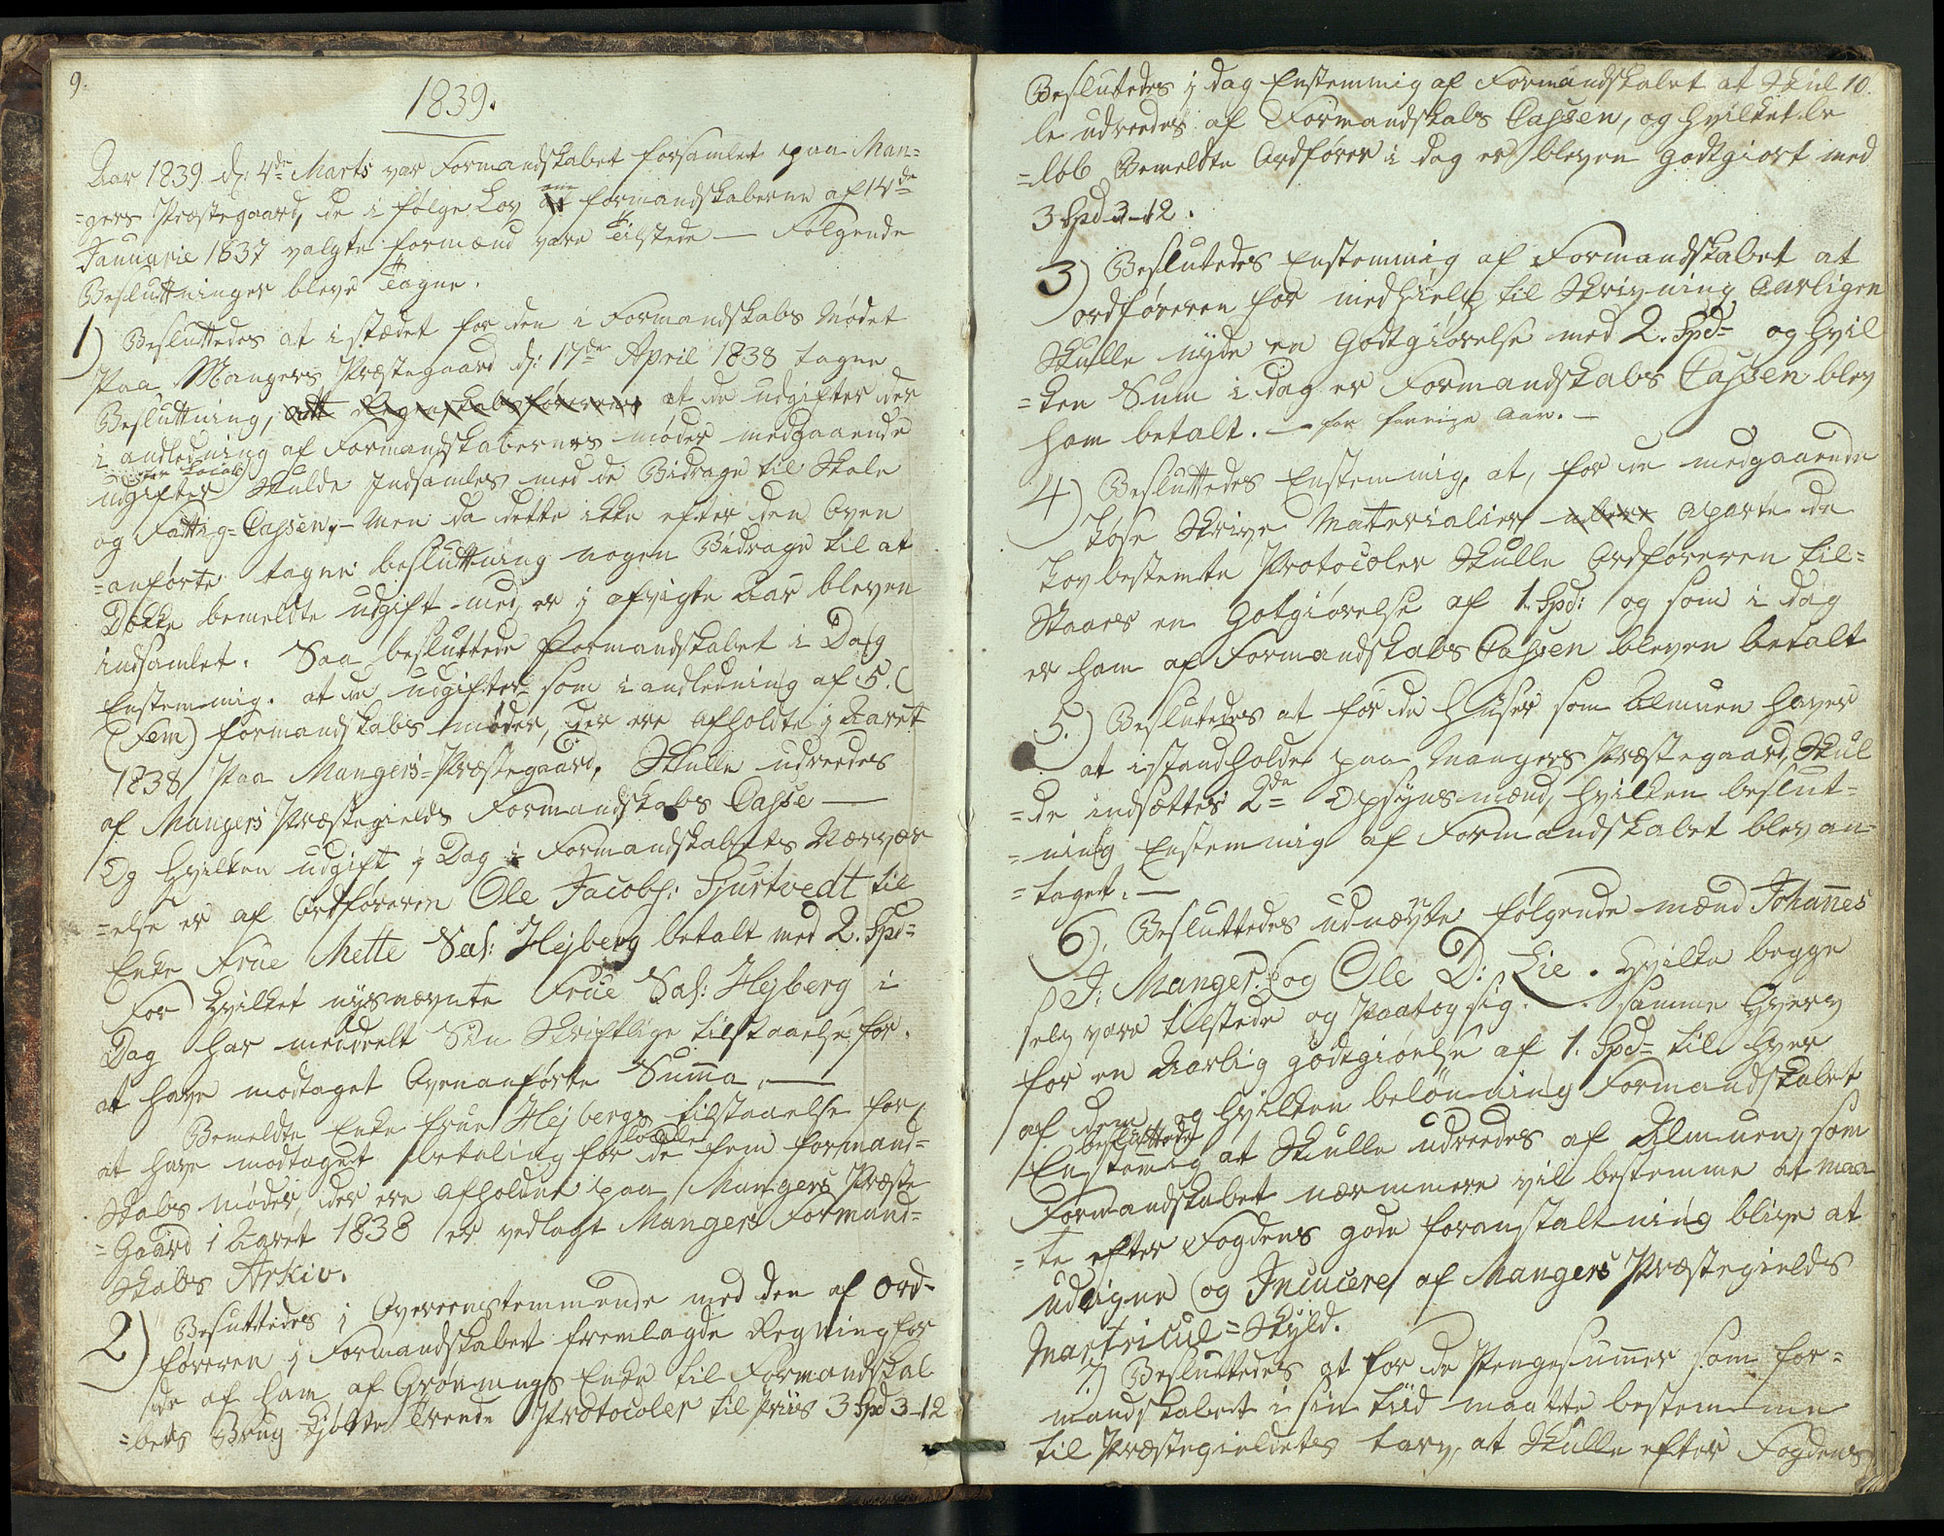 9.
1839.
Aar 1839 d: 4de Marts var Formandskabet forsamlet paa Man=
=gers Præstegaard, de i følge Lov om formandskaberne af 14de
Januarie 1837 valgte formænd vare Tilstede — Følgende
Besluttninger bleve Tagne.
1) Besluttedes at i stædet for den i Formandskabs Mødet
Paa Mangers Præstegaard d: 17de April 1838 tagne
Besluttning, att Regnskabsføreren at de udgifter der
i andledning af Formandskabernes møder medgaaende
udgifter Skulde Indsamles med de Bidrage til Skole
og Fattig-Cassen, — men da dette ikke efter den Oven
=anførte tagne besluttning nogen Bidrage til at
Dække bemeldte udgift med, er j afvigte Aar bleven
indsamlet. Saa besluttede Formandskabet i Dag
Enstemmig. at de udgifter som i andledning af 5. (
(Fem) formandskabs møder, der ere afholdte j Aaret
1838 Paa Mangers-Præstegaard, Skulle udredes
af Mangers Præstegields Formandskabs Casse —
Og Hvilken udgift j Dag i Formandskabets Nærvær
=else er af Ordføreren Ole Jacobs: Hjurtvedt til
Enke Frue Mette Sal: Hejberg betalt med 2. Spd=
For Hvilket nysnævnte Frue Sal: Hejberg i
Dag har meddeelt Sin Skriftlige tilstaaelse for
at have modtaget Ovenanførte Summa. —
Bemeldte Enke frue Hejbergs tilstaaelse for
at have modtaget betaling for de fem formand=
Skabs møder, der ere afholdne paa Mangers Præste
=Gaard i Aaret 1838 er vedlagt Mangers Formand=
Skabs Arkiv.
2) Besluttedes j Overeenstemmende med den af Ord-
føreren j Formandskabet fremlagde Regning for
de af ham af Grønnings Enke til Formandskab
=bets Brug Kjøbte Trende Protocoler til Priis 3 Spd 3-12
Beslutedes j dag Enstemmig af Formandskabet at Skul 10.
le udredes af Formandskabs Cassen, og Hvilket be
=løb Bemeldte Ordfører i dag er bleven Godtgiort med
3 Spd 3-12.
3) Beslutedes Enstemmig af Formandskabet at
ordføreren for medhielp til Skrivning Aarligen
Skulle nyde en Godtgiørelse med 2. Spd= og Hvil
=ken Sum i dag er Formandskabs Cassen blev
ham betalt. — for forrige Aar. —
4) Besluttedes Enstemmig, at, for de medgaaende
Løse Skrive Materialier aparte de
Lovbestemte Protocoler Skulle Ordføreren til=
Staaes en Gotgiørelse af 1 Spd: og som i dag
er ham af Formandskabs Cassen bleven betalt
5.) Beslutedes at for de Huser som Almuen haver
at istandholde paa Mangers Præstegaard, Skul
=de indsættes 2de Opsyns mænd, Hvilken beslut=
=ning Enstemmig af Formandskabet blev an=
=taget. —
6) Besluttedes udnævnte følgende mænd Johannes
J: Manger. og Ole D: Lie. Hvilke begge
selv vare tilstede og Paatog sig. samme Hverv
for en Aarlig godtgiørelse af 1. Spd= til Hver
af dem og Hvilken belønning Formandskabet
besluttede
Enstemig at Skulle udredes af Almuen, som
Formandskabet nærmere vil bestemme at maa
=te efter Fogdens gode foranstaltning blive at
udligne og Incacere af Mangers Præstegields
Martricul=Skyld.
7) Besluttedes at for de Pengesummer som for=
mandskabet i sin tiid maatte bestemme
til Præstegieldets tarv, at Skulle efter Fogdens